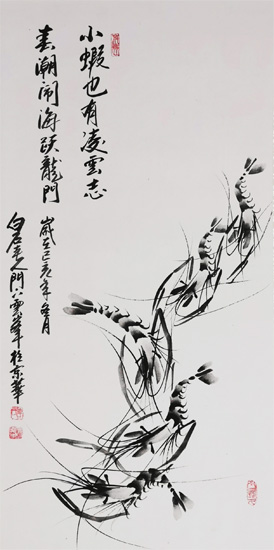 小蝦也有凌雲志
春潮闹海跃龍門
歲在己亥年冬月
白石老人門下雲峯於京華